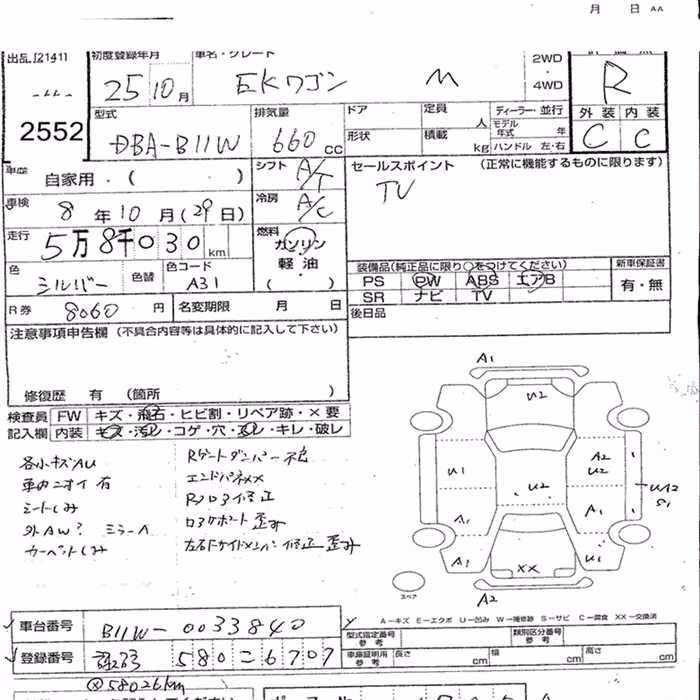 月 日 AA
出品 [21411 初度登録年月 車名・グレード 2WD
25 10月 EKワゴン M ・ 4WD R
2552
型式 排気量 ドア 定員 人 ディーラー・並行 外装 内装
DBA-B11W 660cc 形状 積載 kg モデル年式 年 ハンドル 左・右 C C
車歴 自家用・( ) シフト A/T セールスポイント (正常に機能するものに限ります)
車検 8年10月(29日) 冷房 A/C TV
走行 5万8千030km 燃料 ガソリン
軽油
( )
色 シルバー 色替 色コード A31
装備品(純正品に限り○をつけてください) 新車保証書
PS PW ABS エアB 有・無
SR ナビ TV
R券 8060円 名変期限 月 日 後日品
注意事項申告欄 (不具合内容等は具体的に記入して下さい)
修復歴 有 (箇所 )
検査員 FW キズ・飛石・ヒビ割・リペア跡・×要
記入欄 内装 キズ・汚レ・コゲ・穴・スレ・キレ・破レ
各小キズAU
車内ニオイ有
シートしみ
外AW? ミラーA
カーペットしみ
Rゲートダンパー不良
エンドパネXX
Rフロア修正
ロアサポート歪み
左右Fサイドメンバー修正歪み
A1
U2
U1 A2
U2
U2
A1 A1 UA2
S1
A1 XX U1
スペア A2
A-キズ E-エクボ U-凹み W-補修跡 S-サビ C-腐食 XX-交換済
車台番号 B11W-0033840 型式指定番号 参考 類別区分番号 参考
登録番号 580 6707 車庫証明用 参考 長さ cm 幅 cm 高さ cm
58026km